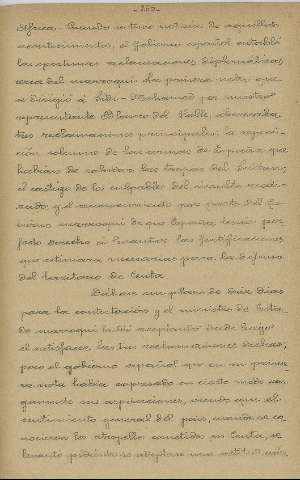 - 260 -
Africa. Cuando se tuvo noticia de aquellos
acontecimientos, el gobierno español entabló
las oportunas reclamaciones diplomáticas
cerca del marroquí. La primera nota que
se dirigió á Sidi-Mohamad por nuestro
representante Blanco del Valle, observaba
tres reclamaciones principales: la reposi-
ción solemne de las armas de España que
habían de saludar las tropas del Sultan;
el castigo de los culpables del insulto reali-
zado, y el reconocimiento por parte del Go-
bierno marroquí de que España tenía per-
fecto derecho á levantar las fortificaciones
que estimara necesarias para la defensa
del territorio de Ceuta.
Dábase un plazo de diez días
para la contestación y el ministro de Esta-
do marroquí la dió aceptando desde luego
el satisfacer las tres reclamaciones dichas,
pero el gobierno español que en su prime-
ra nota había expresado en cierto modo
sus aspiraciones, viendo que el
sentimiento general del país, cuando se co-
nocieron los atropellos cometidos en Ceuta, se
levantó pidiendo se adoptara una actitud